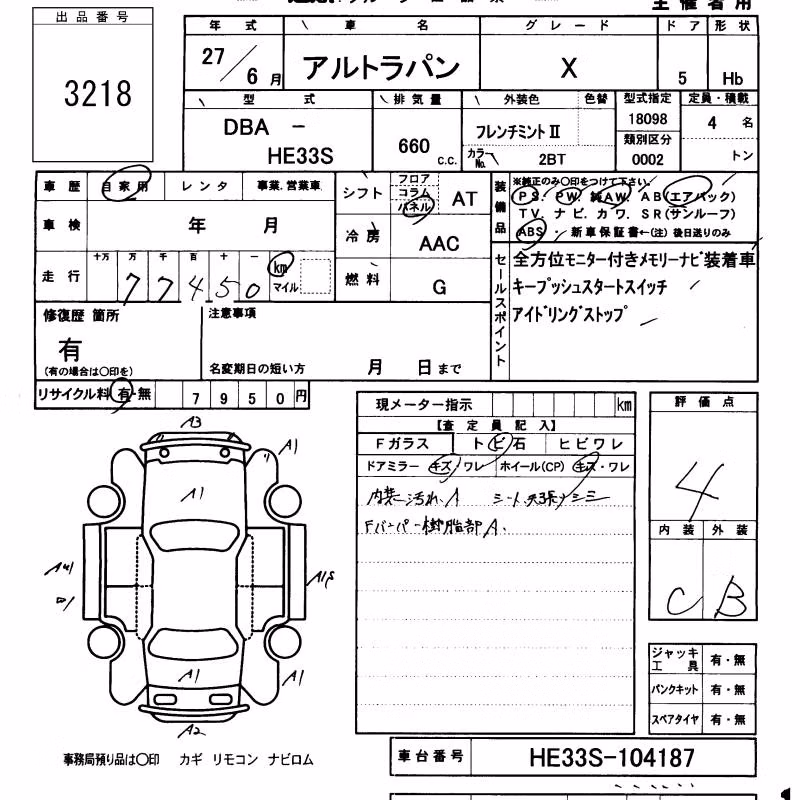 主催者用
出品番号
3218
年式 車名 グレード ドア 形状
27/6月 アルトラパン X 5 Hb
型式 排気量 外装色 色替 型式指定 定員・積載
DBA - HE33S
660 c.c.
フレンチミントⅡ
カラーNo. 2BT
18098
類別区分
0002
4 名
トン
車歴 自家用 レンタ 事業.営業車
車検 年 月
走行 十万 万 千 百 十 一
77450 km マイル
シフト フロア コラム パネル AT
冷房 AAC
燃料 G
装備品
※純正のみ〇印をつけて下さい。
PS. PW. 純AW. AB(エアバック)
TV. ナビ. カワ. SR(サンルーフ)
ABS・ 新車保証書←(注) 後日送りのみ
セールスポイント
全方位モニター付きメモリーナビ装着車
キープッシュスタートスイッチ
アイドリングストップ
修復歴 箇所
有
(有の場合は〇印を)
注意事項
名変期日の短い方 月 日まで
リサイクル料 有・無 7950円
現メーター指示 km
【査定員記入】
Fガラス トビ石 ヒビワレ
ドアミラー キズ・ワレ ホイール(CP) キズ・ワレ
内装 汚れ A
Fバンパー樹脂部A.
評価点
4
内装 外装
C B
A3
A1
A1
A1
A1
A2
ジャッキ工具 有・無
パンクキット 有・無
スペアタイヤ 有・無
事務局預り品は〇印 カギ リモコン ナビロム
車台番号 HE33S-104187